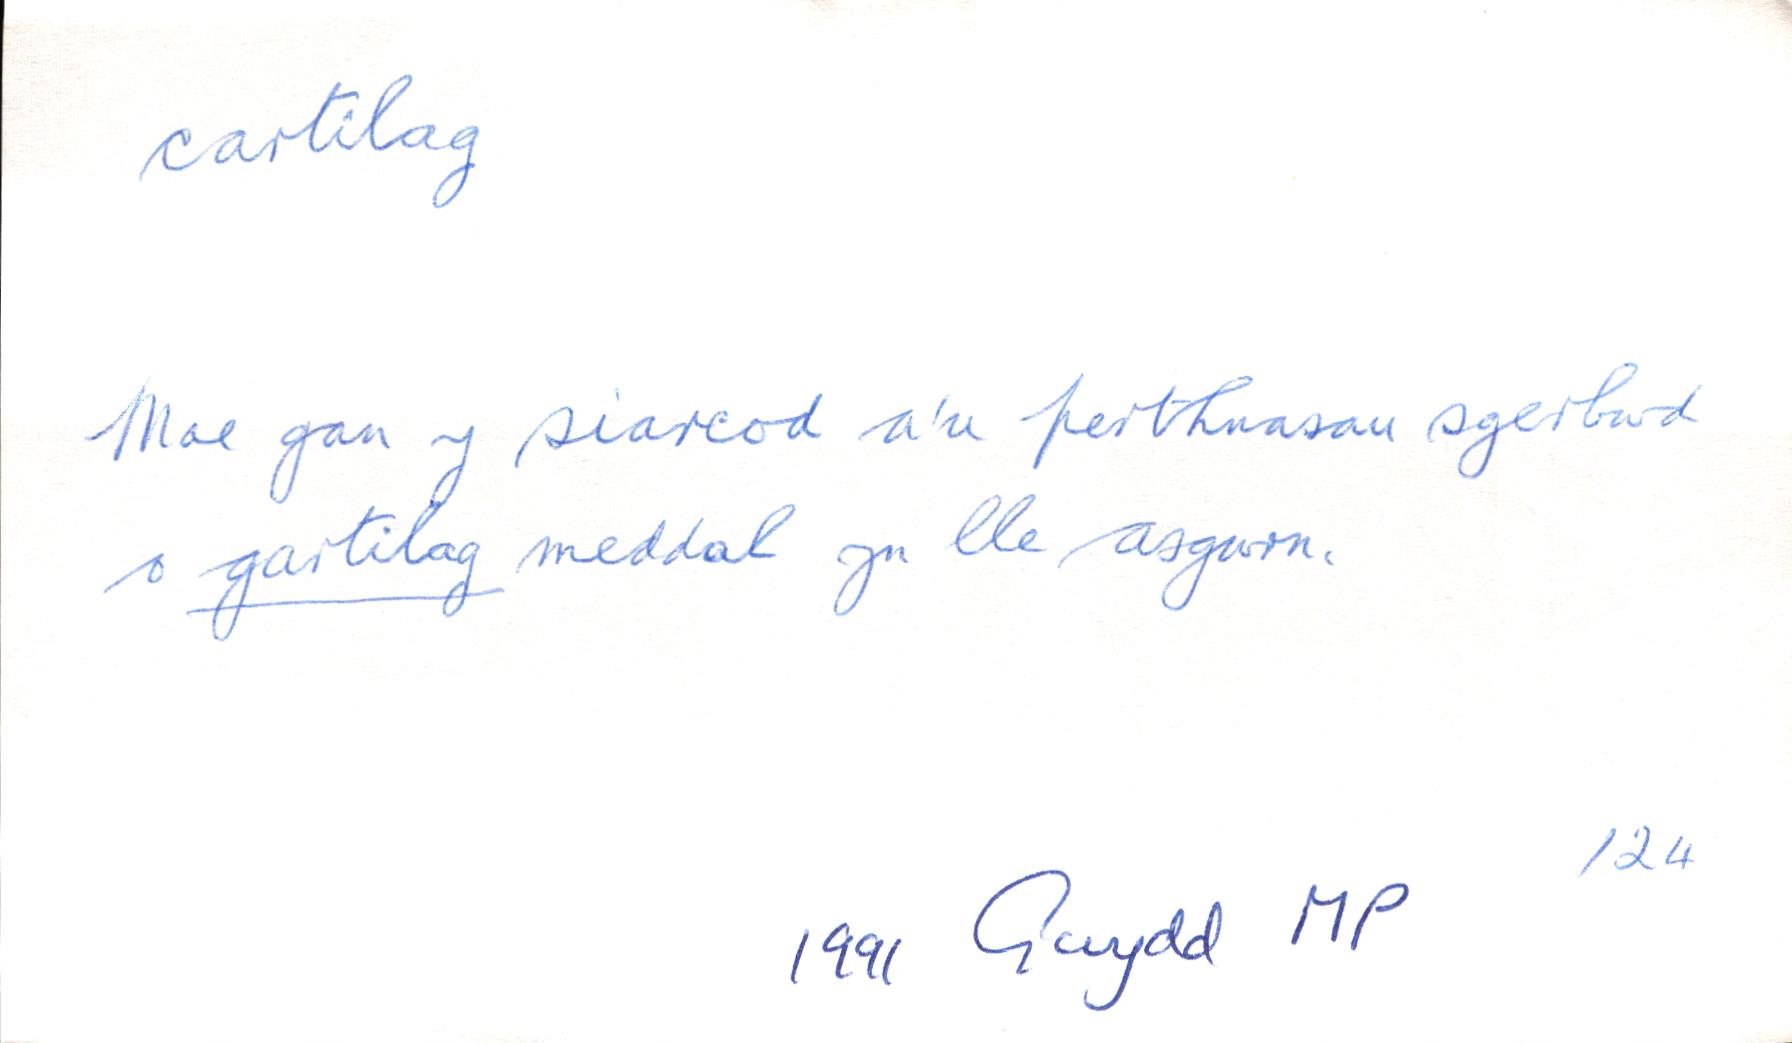 cartilag
Mae gan y siarcod a'u perthnasau sgerbwd
o gartilag meddal yn lle asgwrn.
124
1991 Gwydd MP